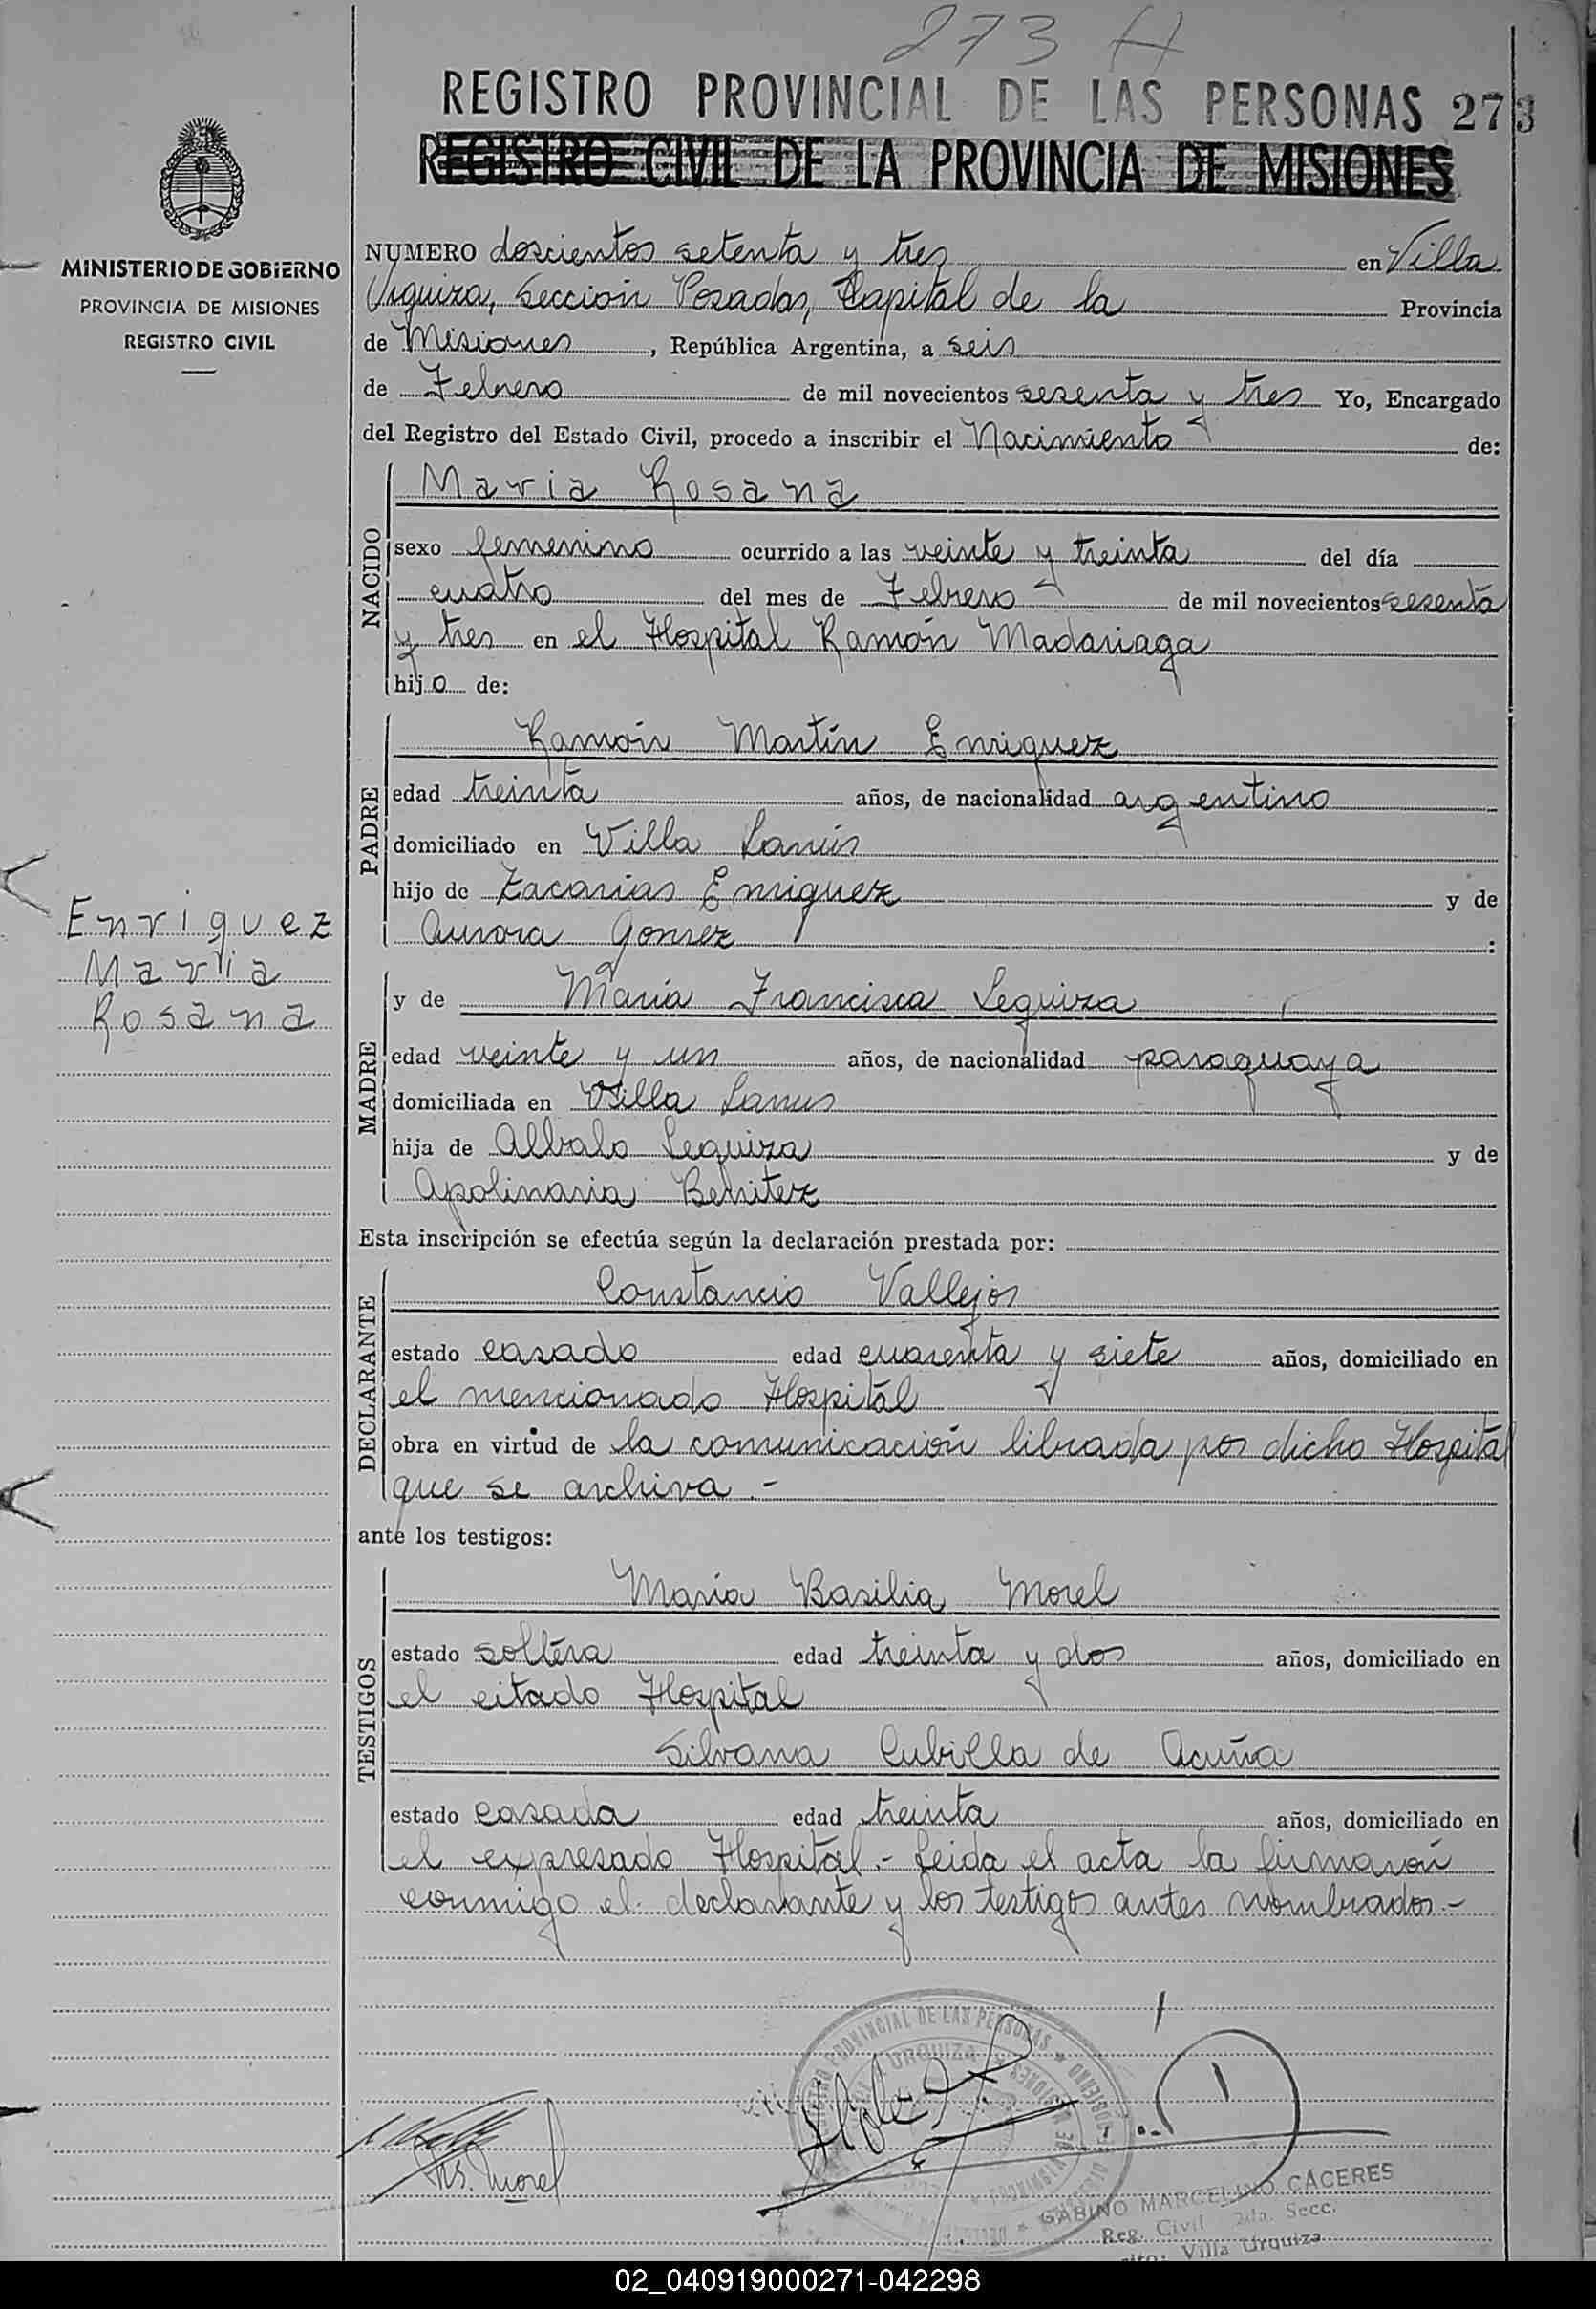 273 H
REGISTRO PROVINCIAL DE LAS PERSONAS 273
REGISTRO CIVIL DE LA PROVINCIA DE MISIONES
MINISTERIO DE GOBIERNO
PROVINCIA DE MISIONES
REGISTRO CIVIL
NUMERO doscientos setenta y tres en Villa
Urquiza, Sección Posadas, Capital de la Provincia
de Misiones, República Argentina, a seis
de Febrero de mil novecientos sesenta y tres Yo, Encargado
del Registro del Estado Civil, procedo a inscribir el Nacimiento de:
NACIDO
Maria Rosana
sexo femenino ocurrido a las veinte y treinta del día
cuatro del mes de Febrero de mil novecientos sesenta
y tres en el Hospital Ramón Madariaga
hijo de:
PADRE
Ramón Martín Enriquez
edad treinta años, de nacionalidad argentino
domiciliado en Villa Lanús
hijo de Zacarias Enriquez y de
Aurora Gomez:
Enriquez
Maria
Rosana
MADRE
y de María Francisca Leguiza
edad veinte y un años, de nacionalidad paraguaya
domiciliada en Villa Lanus
hija de Albalo Leguiza y de
Apolinaria Benitez
Esta inscripción se efectúa según la declaración prestada por:
DECLARANTE
Constancio Vallejos
estado casado edad cuarenta y siete años, domiciliado en
el mencionado Hospital
obra en virtud de la comunicación librada por dicho Hospital
que se archiva.-
ante los testigos:
TESTIGOS
María Basilia Morel
estado soltera edad treinta y dos años, domiciliado en
el citado Hospital
Silvana Cubilla de Acuña
estado casada edad treinta años, domiciliado en
el expresado Hospital.- Leida el acta la firmarón
conmigo el declarante y los testigos antes nombrados.-
PROVINCIAL DE LAS PERSONAS
URQUIZA
Morel
GABINO MARCELINO CACERES
Reg. Civil 2da. Secc.
Villa Urquiza
02_040919000271-042298